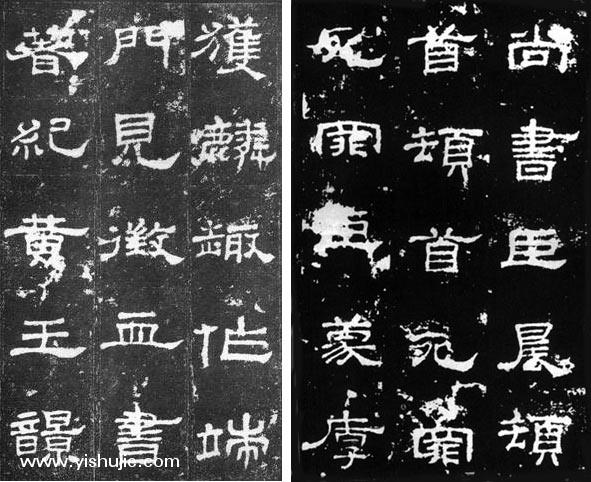 尚書臣晨頓
首頓首死罪
死罪臣蒙厚
獲麟趣作端
門見徵血書
著紀黃玉韻
www.yishujie.com